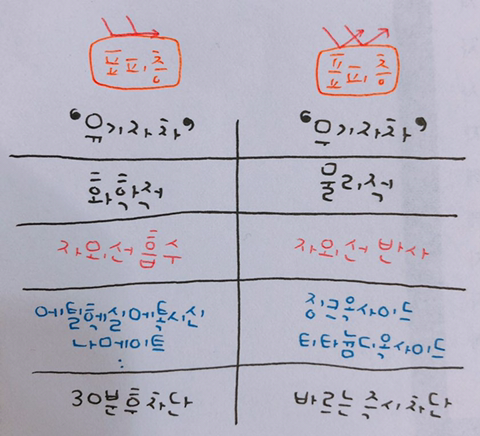 '유기자차' '무기자차'
화학적 물리적
자외선 흡수 자외선 반사
에틸헥실메톡시신
나메이트
:
징크옥사이드
티타늄디옥사이드
30분 후 차단 바르는 즉시 차단